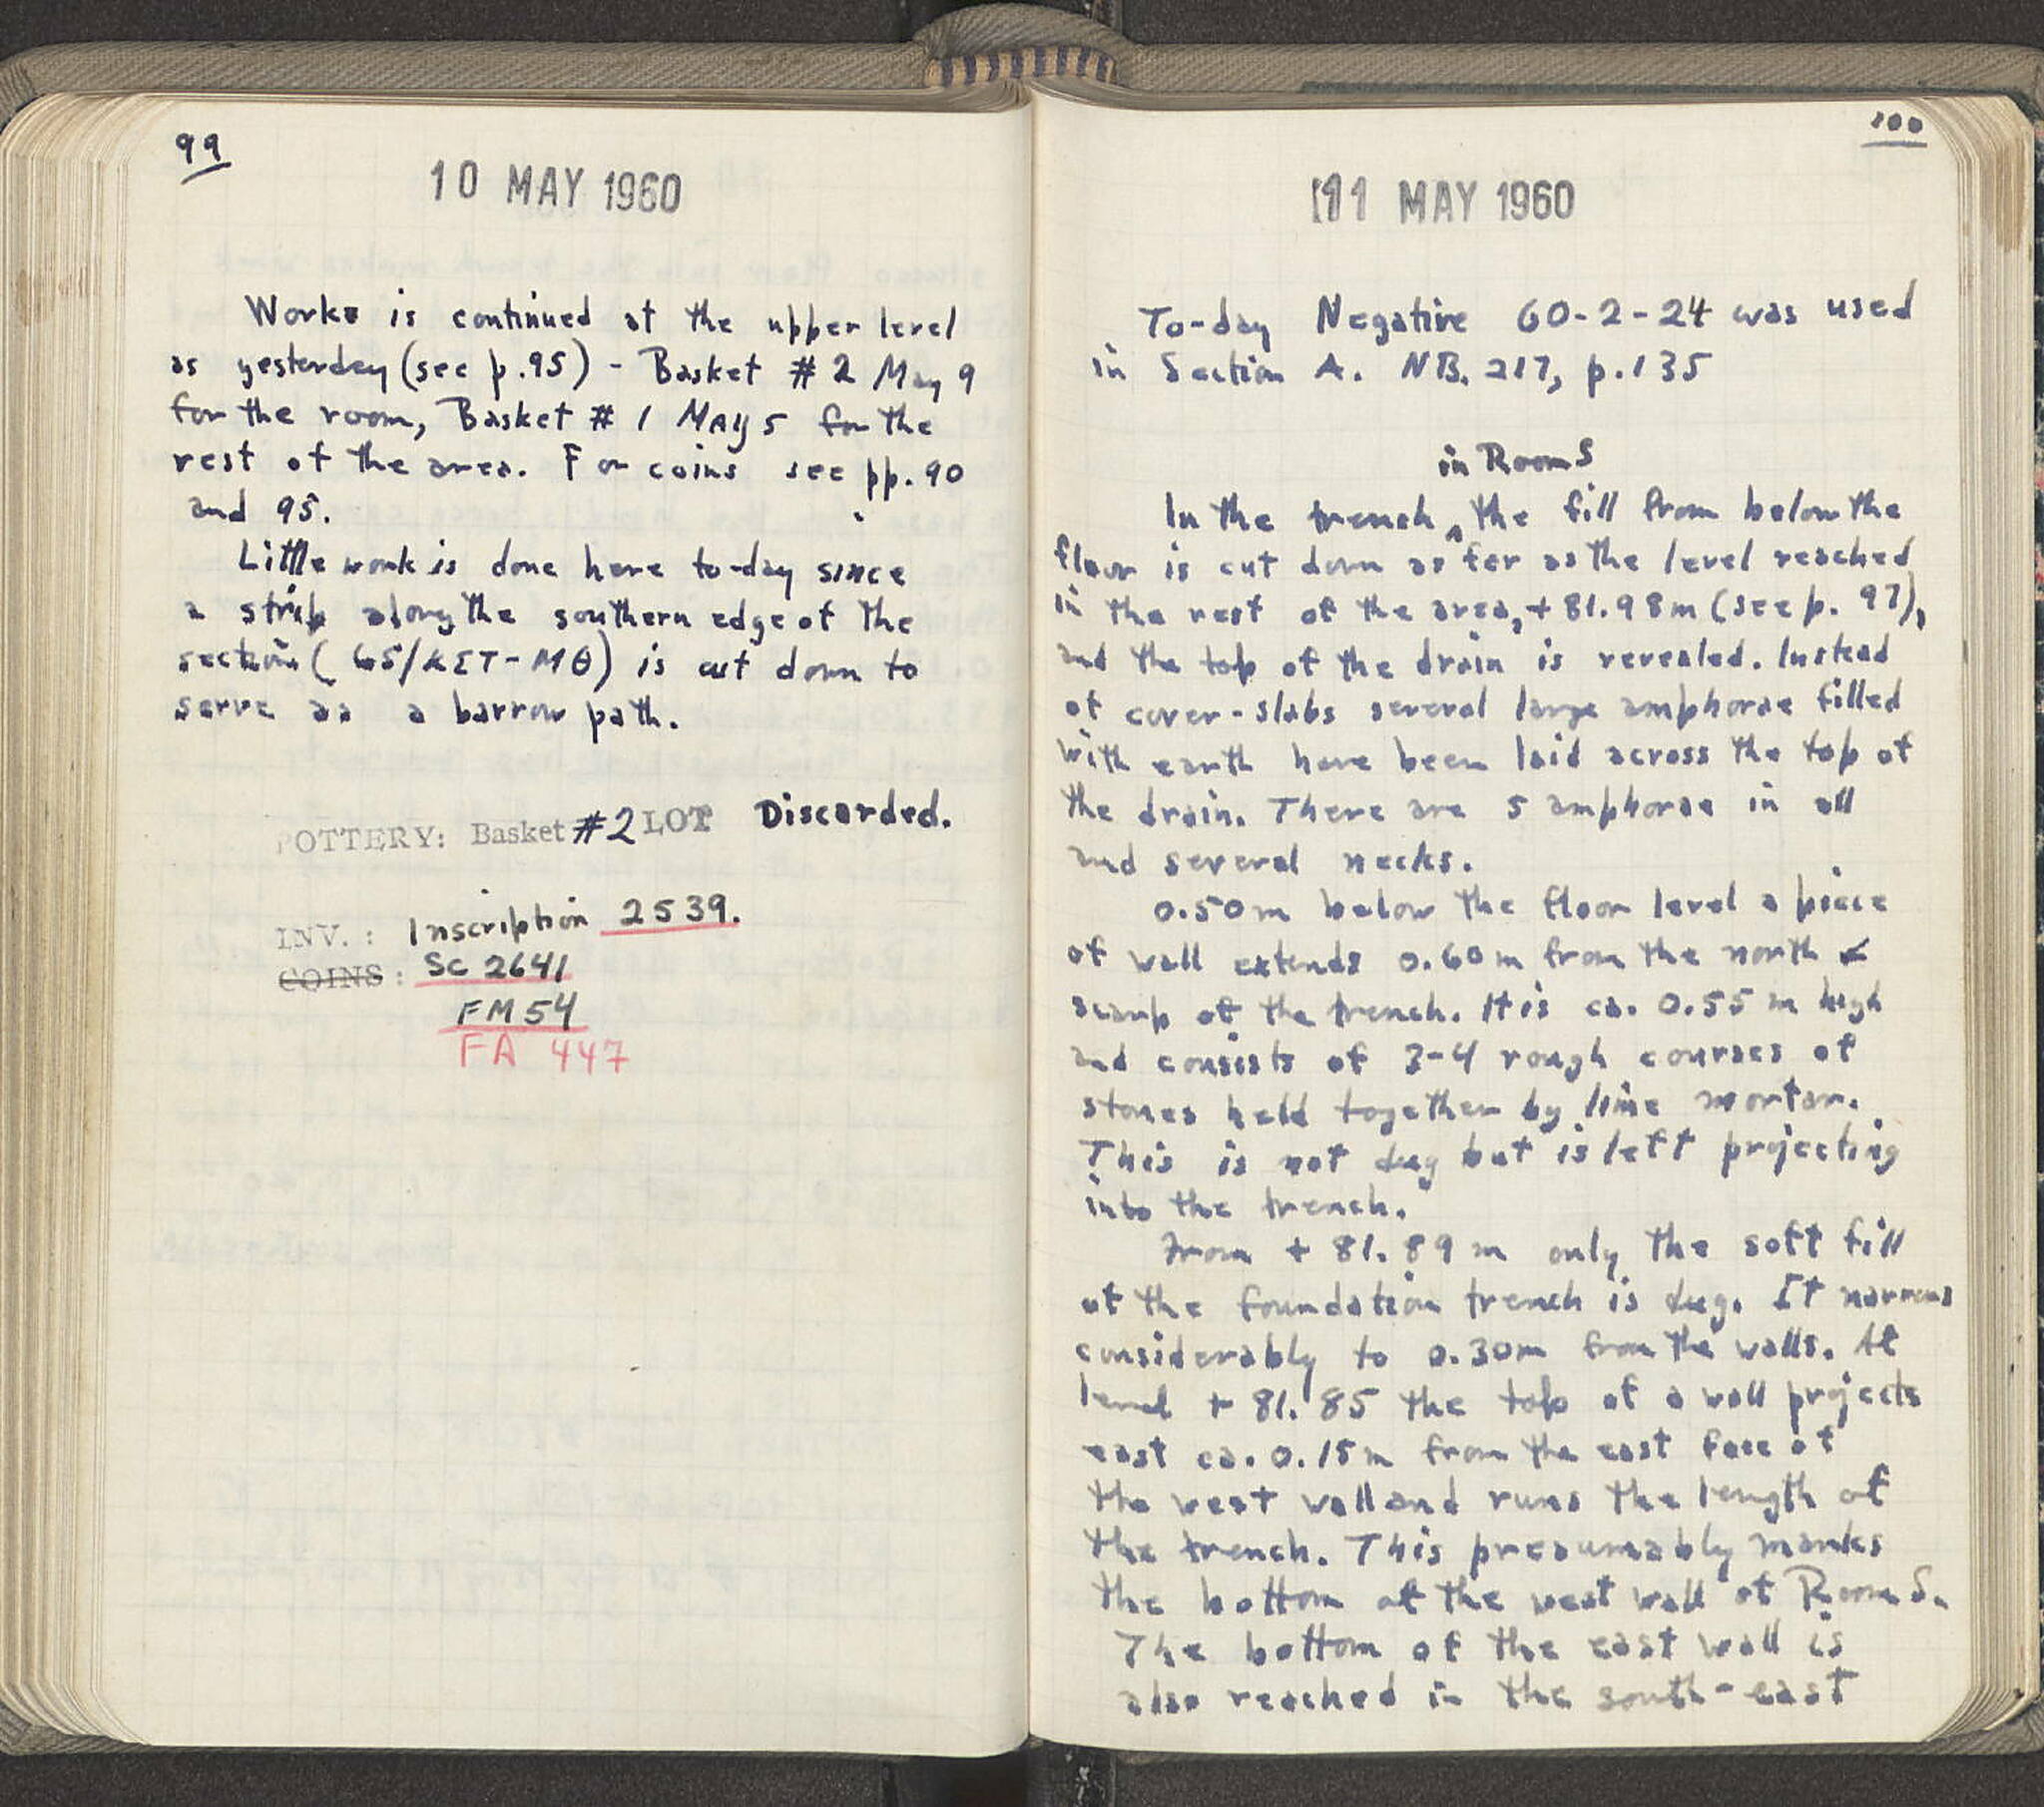 99
10 MAY 1960
Works is continued at the upper level
as yesterday (see p.95) - Basket # 2 May 9
for the room, Basket # 1 MAY 5 for the
rest of the area. For coins see pp. 90
and 95.
Little work is done here to-day since
a strip along the southern edge of the
section ( 65/ΚΣΤ-ΜΘ) is cut down to
serve as a barrow path.
POTTERY: Basket #2 LOT Discarded.
INV. : Inscription 2539.
COINS : SC 2641
FM 54
FA 447
100
11 MAY 1960
To-day Negative 60-2-24 was used
in Section A. NB. 217, p.135
in Room S
In the trench ^ the fill from below the
floor is cut down as far as the level reached
in the rest of the area, + 81.98m (see p. 97),
and the top of the drain is revealed. Instead
of cover-slabs several large amphorae filled
with earth have been laid across the top of
the drain. There are 5 amphorae in all
and several necks.
0.50m below the floor level a piece
of wall extends 0.60m from the north
scarp of the trench. It is ca. 0.55 m high
and consists of 3-4 rough courses of
stones held together by lime mortar.
This is not dug but is left projecting
into the trench.
From + 81.89 m only the soft fill
of the foundation trench is dug. It narrows
considerably to 0.30m from the walls. At
level + 81.85 the top of a wall projects
east ca. 0.15m from the east face of
the west wall and runs the length of
the trench. This presumably marks
the bottom of the west wall of Room S.
The bottom of the east wall is
also reached in the south-east